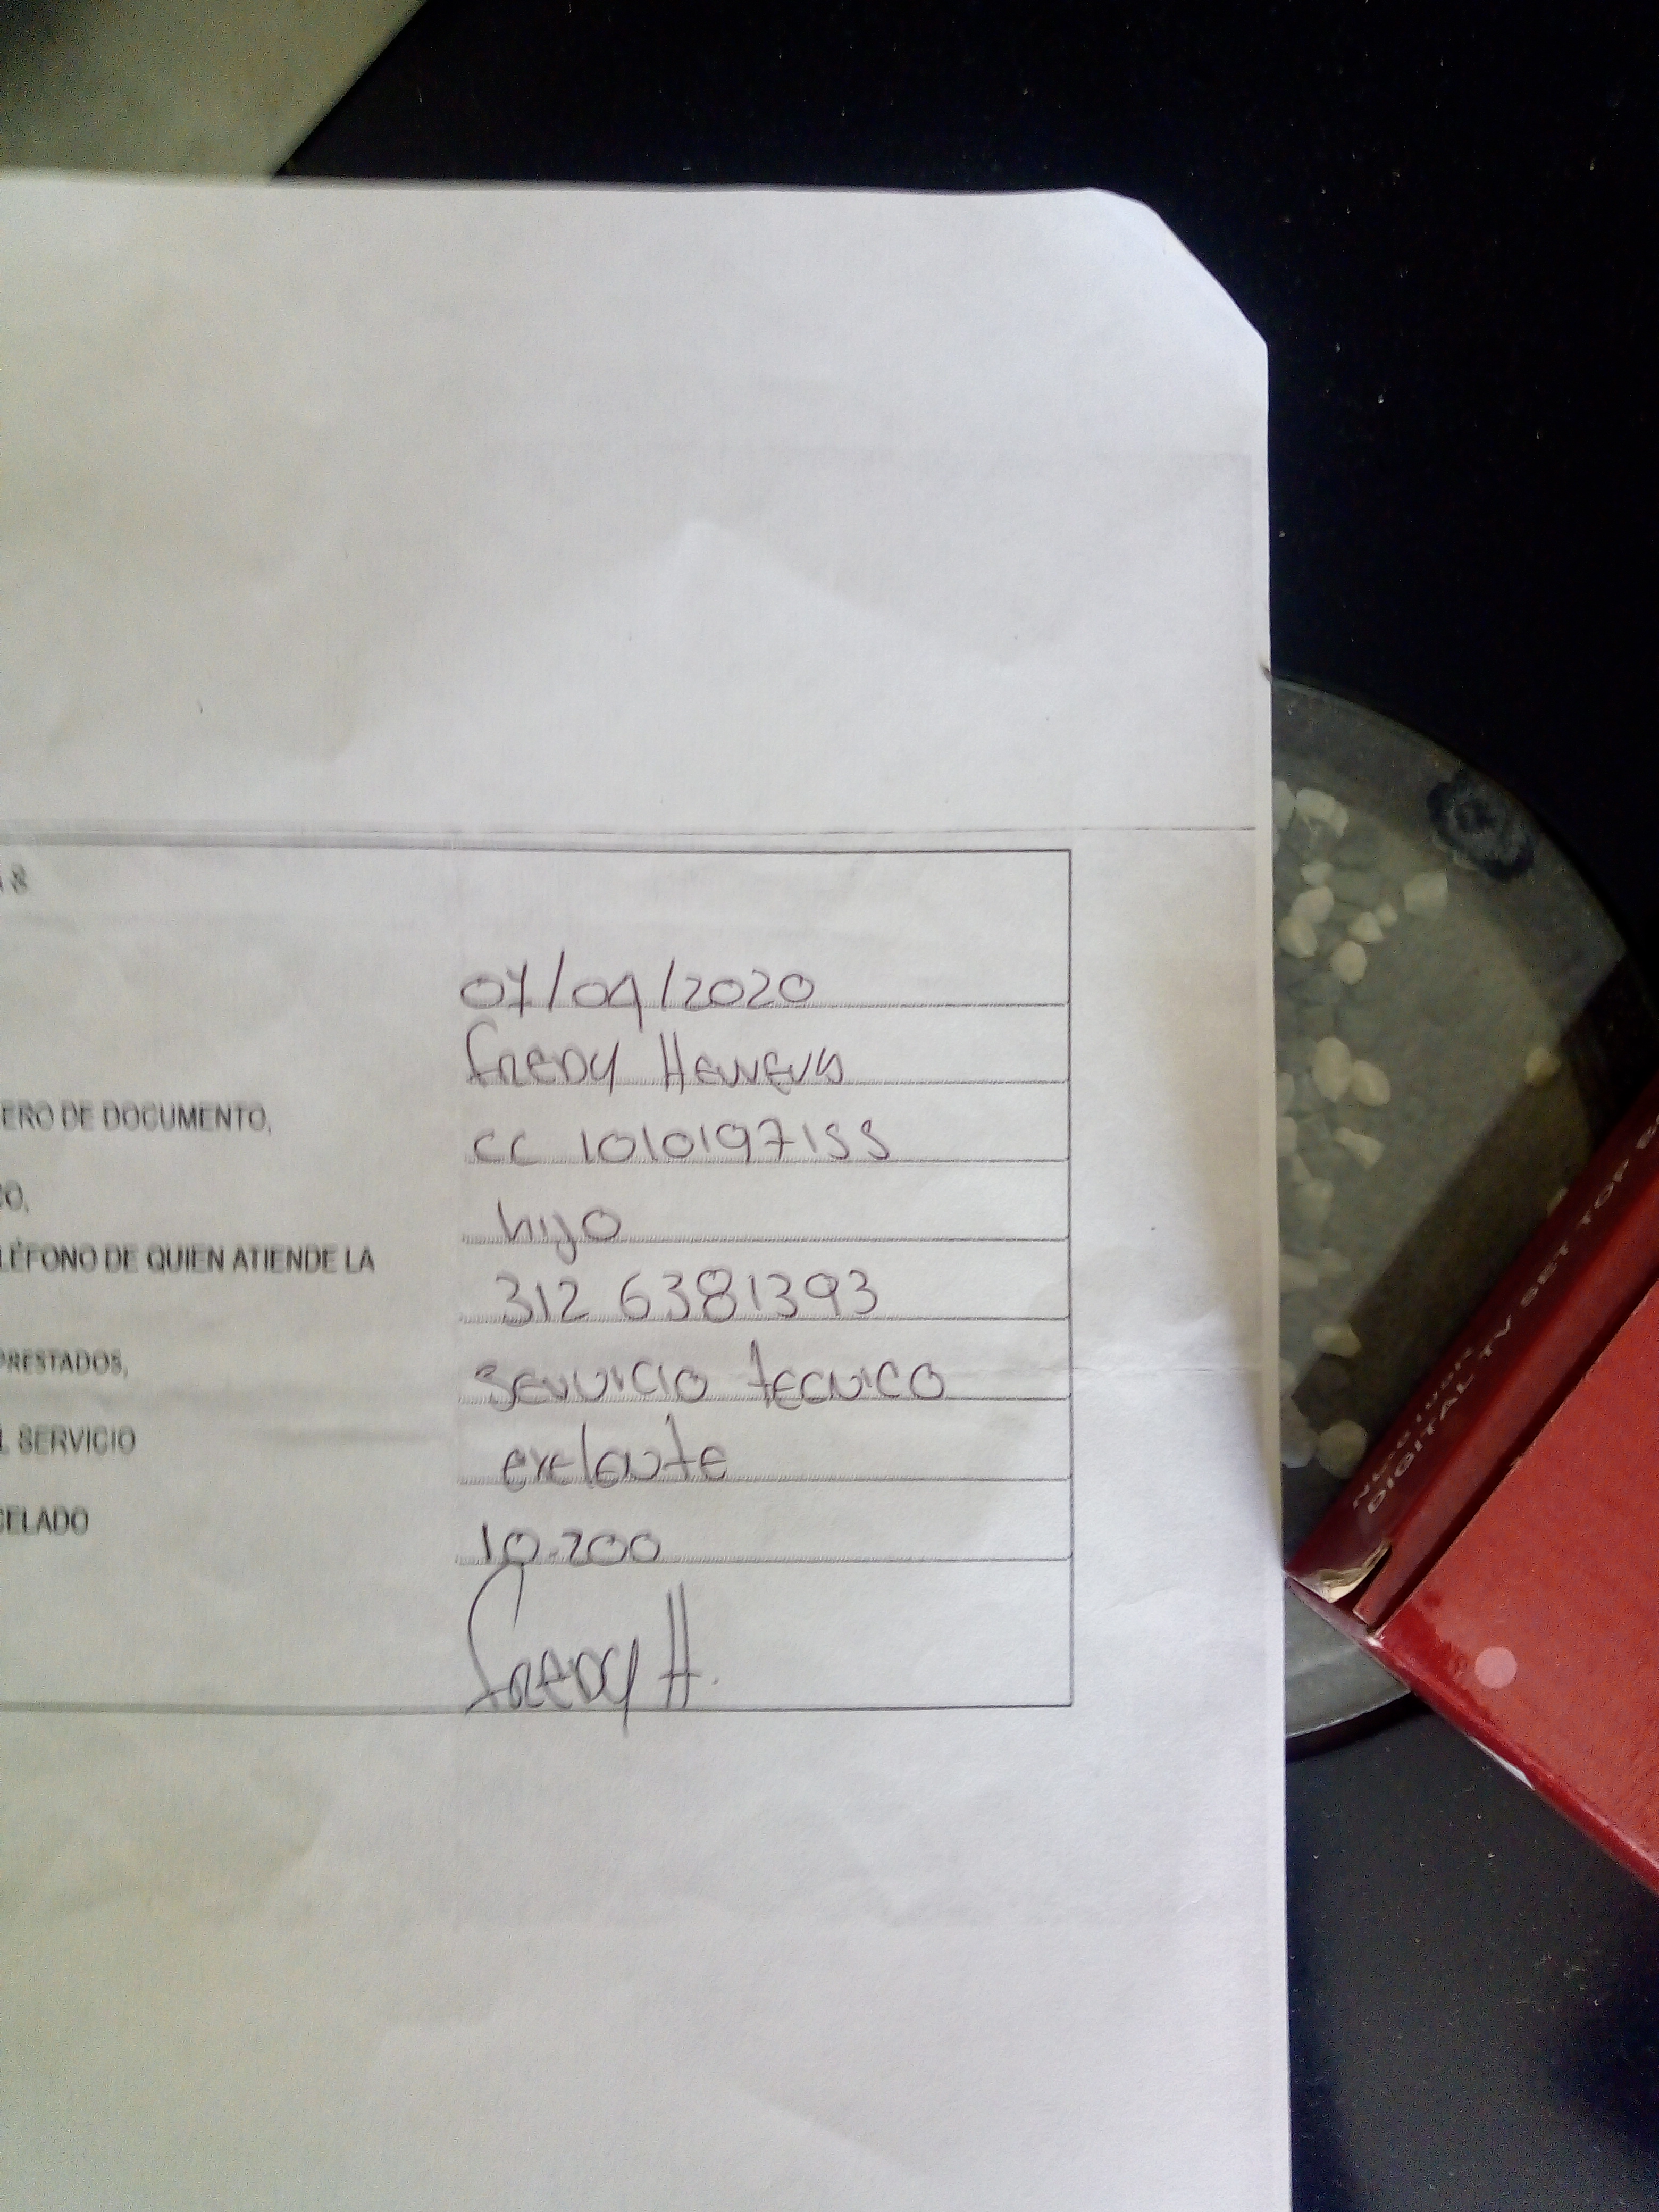 8
07/09/2020
FREDY HERRERA
ERO DE DOCUMENTO,
CC 1010197155
CO,
hijo
LÉFONO DE QUIEN ATIENDE LA
312 6381393
PRESTADOS,
SERVICIO TECNICO
L SERVICIO
exelente
CELADO
10.200
FREDY H.
DIGITAL TV SET TOP B